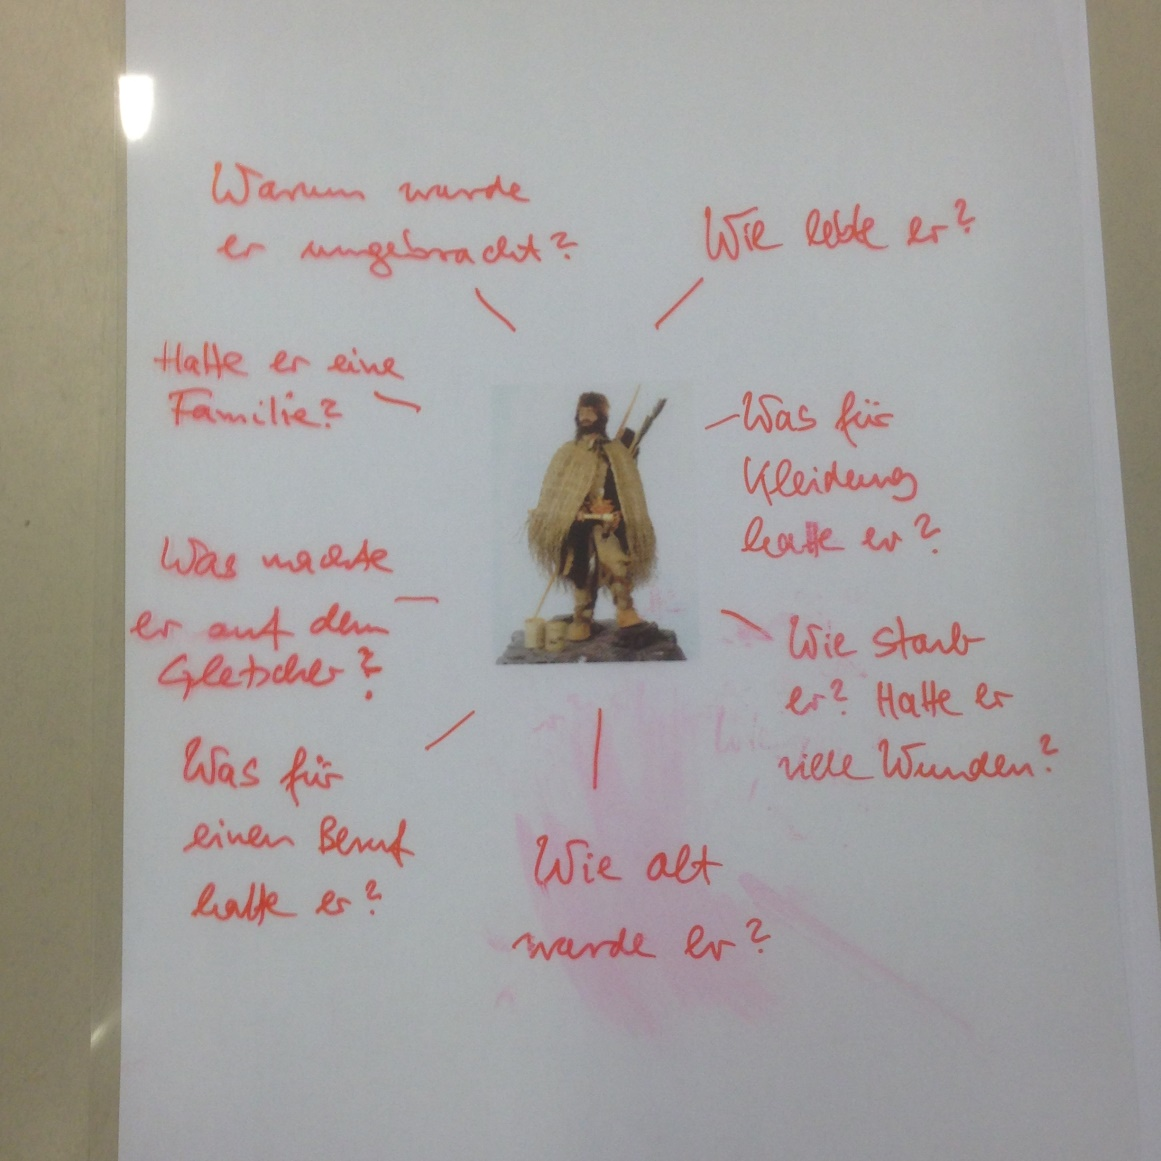 Warum wurde
er umgebracht?
Wie lebte er?
Hatte er eine
Familie?
Was für
Kleidung
hatte er?
Was machte
er auf dem
Gletscher?
Wie starb
er? Hatte er
viele Wunden?
Was für
einen Beruf
hatte er?
Wie alt
wurde er?